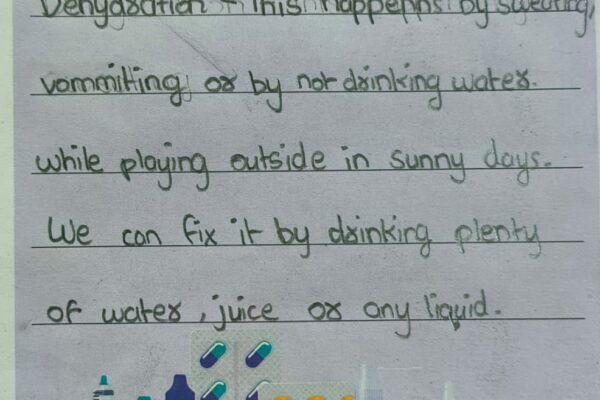 Dehydration - This happenns by sweating,
vommiting or by not drinking water.
while playing outside in sunny days.
We can fix it by drinking plenty
of water, juice or any liquid.